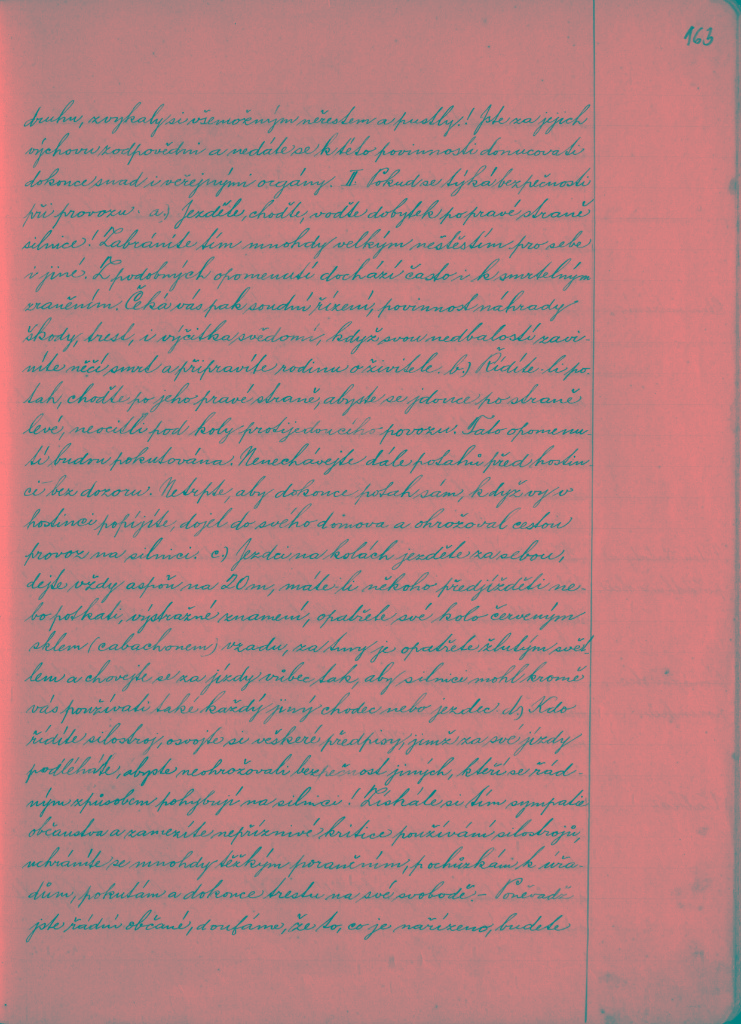 163
druhu, zvykaly si všemožným neřestem a pustly! Jste za jejich
výchovu zodpovědni a nedáte se k této povinnosti donucovati
dokonce snad i veřejnými orgány. II. Pokud se týká bezpečnosti
při provozu: a.) Jezděte, choďte, voďte dobytek po pravé straně
silnice! Zabráníte tím mnohdy velkým neštěstím pro sebe
i jiné. Z podobných opomenutí dochází často i k smrtelným
zraněním. Čeká vás pak soudní řízení, povinnost náhrady
škody, trest, i výčitka svědomí, když svou nedbalostí zavi-
níte něčí smrt a připravíte rodinu o živitele. b.) Řídíte-li po-
tah, choďte po jeho pravé straně, abyste se jdouce po straně
levé, neocitli pod koly protijedoucího povozu. Tato opomenu-
tí budou pokutována. Nenechávejte dále potahů před hostin-
cí bez dozoru. Netrpte, aby dokonce potah sám, když vy v
hostinci popíjíte, dojel do svého domova a ohrožoval cestou
provoz na silnici. c.) Jezdci na kolách jezděte za sebou,
dejte vždy aspoň na 20 m, máte-li někoho předjížděti ne-
bo potkati, výstražné znamení, opatřete své kolo červeným
sklem (cabachonem) vzadu, za tmy je opatřete žlutým svět-
lem a chovejte se za jízdy vůbec tak, aby silnici mohl kromě
vás používati také každý jiný chodec nebo jezdec. d.) Kdo
řídíte silostroj, osvojte si veškeré předpisy, jimž za své jízdy
podléháte, abyste neohrožovali bezpečnost jiných, kteří se řád-
ným způsobem pohybují na silnici! Získáte si tím sympatie
občanstva a zamezíte nepříznivé kritice používání silostrojů,
uchráníte se mnohdy těžkým poraněním, pochůzkám k úřa-
dům, pokutám a dokonce trestu na své svobodě. - Poněvadž
jste řádní občané, doufáme, že to, co je nařízeno, budete